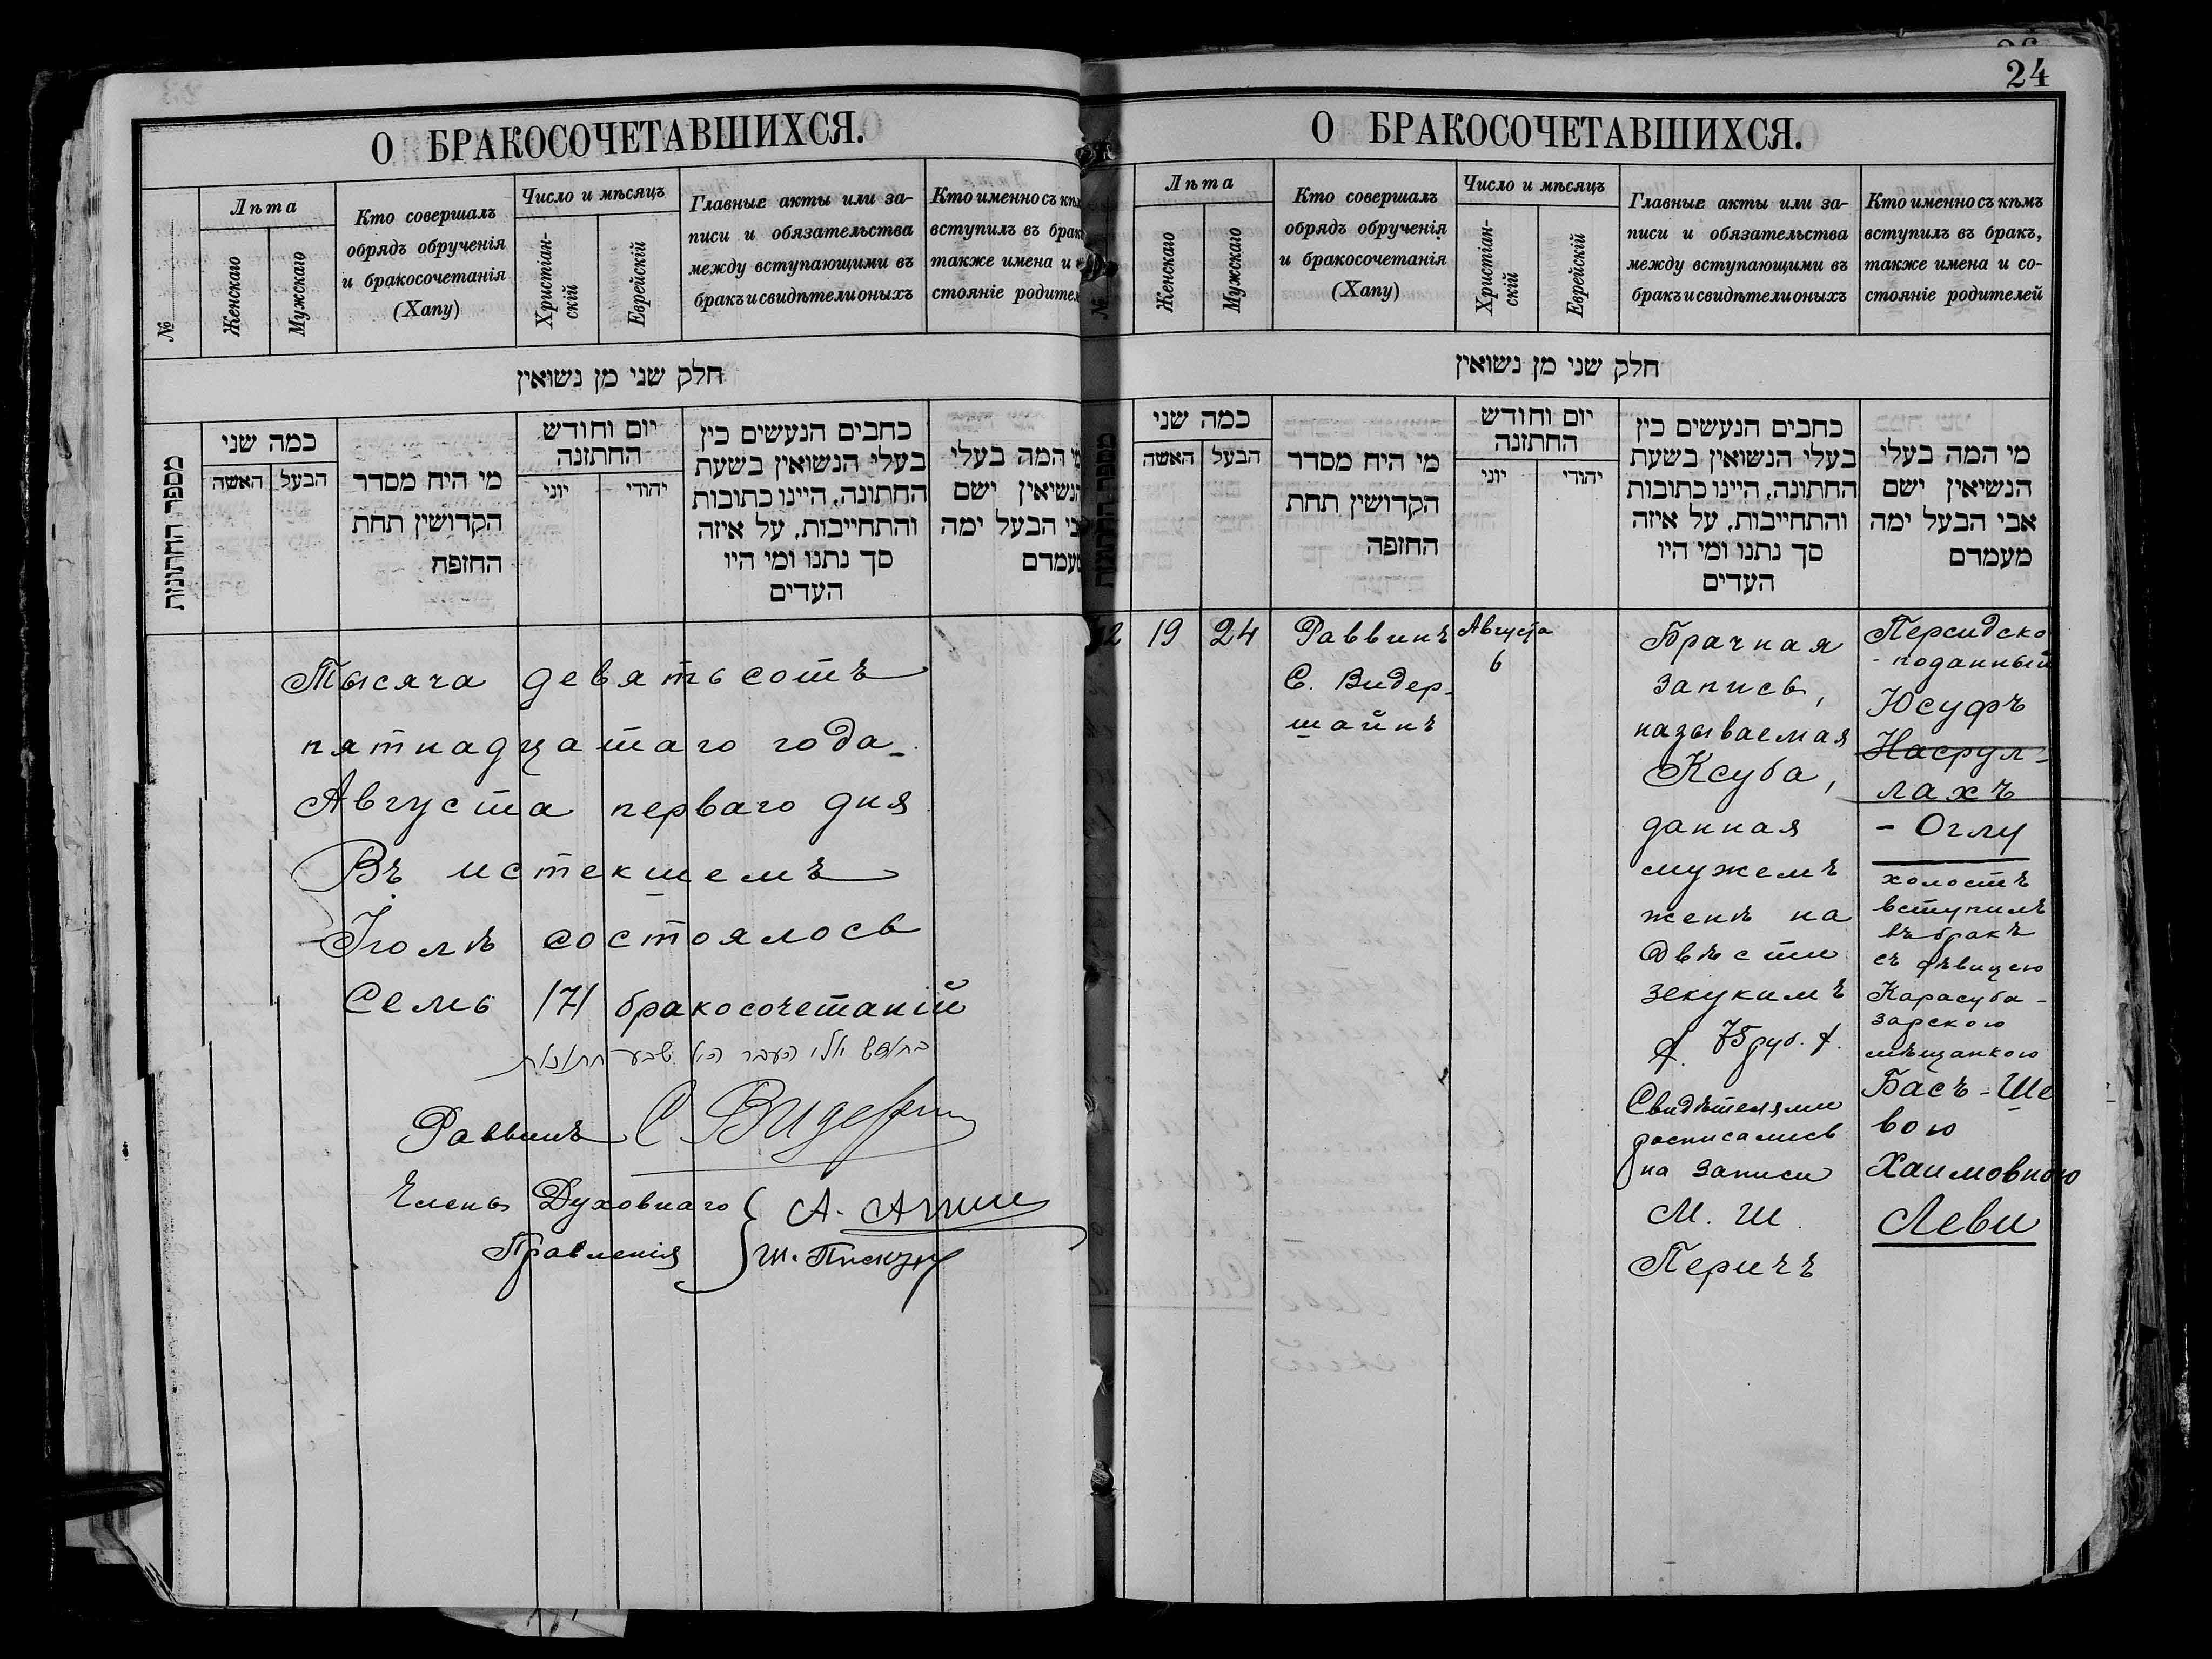 О БРАКОСОЧЕТАВШИХСЯ.
№
Лѣта
Женскаго
Мужскаго
Кто совершалъ
обрядъ обрученія
и бракосочетанія
(Хапу)
Число и мѣсяцъ
Христіан-
скій
Еврейскій
Главные акты или за-
писи и обязательства
между вступающими въ
бракъ и свидѣтели оныхъ
Кто именно съ кѣмъ
вступилъ въ бракъ
также имена и
стояніе родител
חלק שני מן נשואין
מספר החתונות
כמה שני
האשה
הבעל
מי היח מסדר
הקדושין תחת
החזפח
יום וחודש
החתזנה
יוני
יהודי
כחבים הנעשים כין
בעלי הנשואין בשעת
החתונה, היינו כתובות
והתחייבות, על איזה
סך נתנו ומי היו
העדים
המה בעלי
הנשיאין ישם
אבי הבעל ימה
מעמדם
Тысяча девятьсотъ
пятнадцатаго года
Августа перваго дня
Въ истекшемъ
Іюлѣ состоялось
Семь /7/ бракосочетаній
בחודש יולי העבר היו שבע חתונות
Раввинъ С Видерш
Члены Духовнаго
Правленія
А.
Ш. Пискун
24
О БРАКОСОЧЕТАВШИХСЯ.
№
Лѣта
Женскаго
Мужскаго
Кто совершалъ
обрядъ обрученія
и бракосочетанія
(Хапу)
Число и мѣсяцъ
Христіан-
скій
Еврейскій
Главные акты или за-
писи и обязательства
между вступающими въ
бракъ и свидѣтели оныхъ
Кто именно съ кѣмъ
вступилъ въ бракъ,
также имена и со-
стояніе родителей
חלק שני מן נשואין
כמה שני
האשה
הבעל
מי היח מסדר
הקדושין תחת
החזפה
יום וחודש
החתזנה
יוני
יהודי
כחבים הנעשים כין
בעלי הנשואין בשעת
החתונה, היינו כתובות
והתחייבות, על איזה
סך נתנו ומי היו
העדים
מי המה בעלי
הנשיאין ישם
אבי הבעל ימה
מעמדם
2
19
24
Раввинъ
С. Видер-
шайнъ
Августа
6
Брачная
запись,
называемая
Ксуба,
данная
мужемъ
женѣ на
двѣсти
зекукимъ
ф. 75 руб. ф.
Свидѣтелями
росписались
на записи
М. Ш.
Перичъ
Персидско
-поданный
Юсуфъ
Насрул-
лахъ
- Оглу
холостъ
вступилъ
въ бракъ
съ дѣвицею
Карасуба-
зарскою
мѣщанкою
Басъ-Ше
вою
Хаимовною
Леви